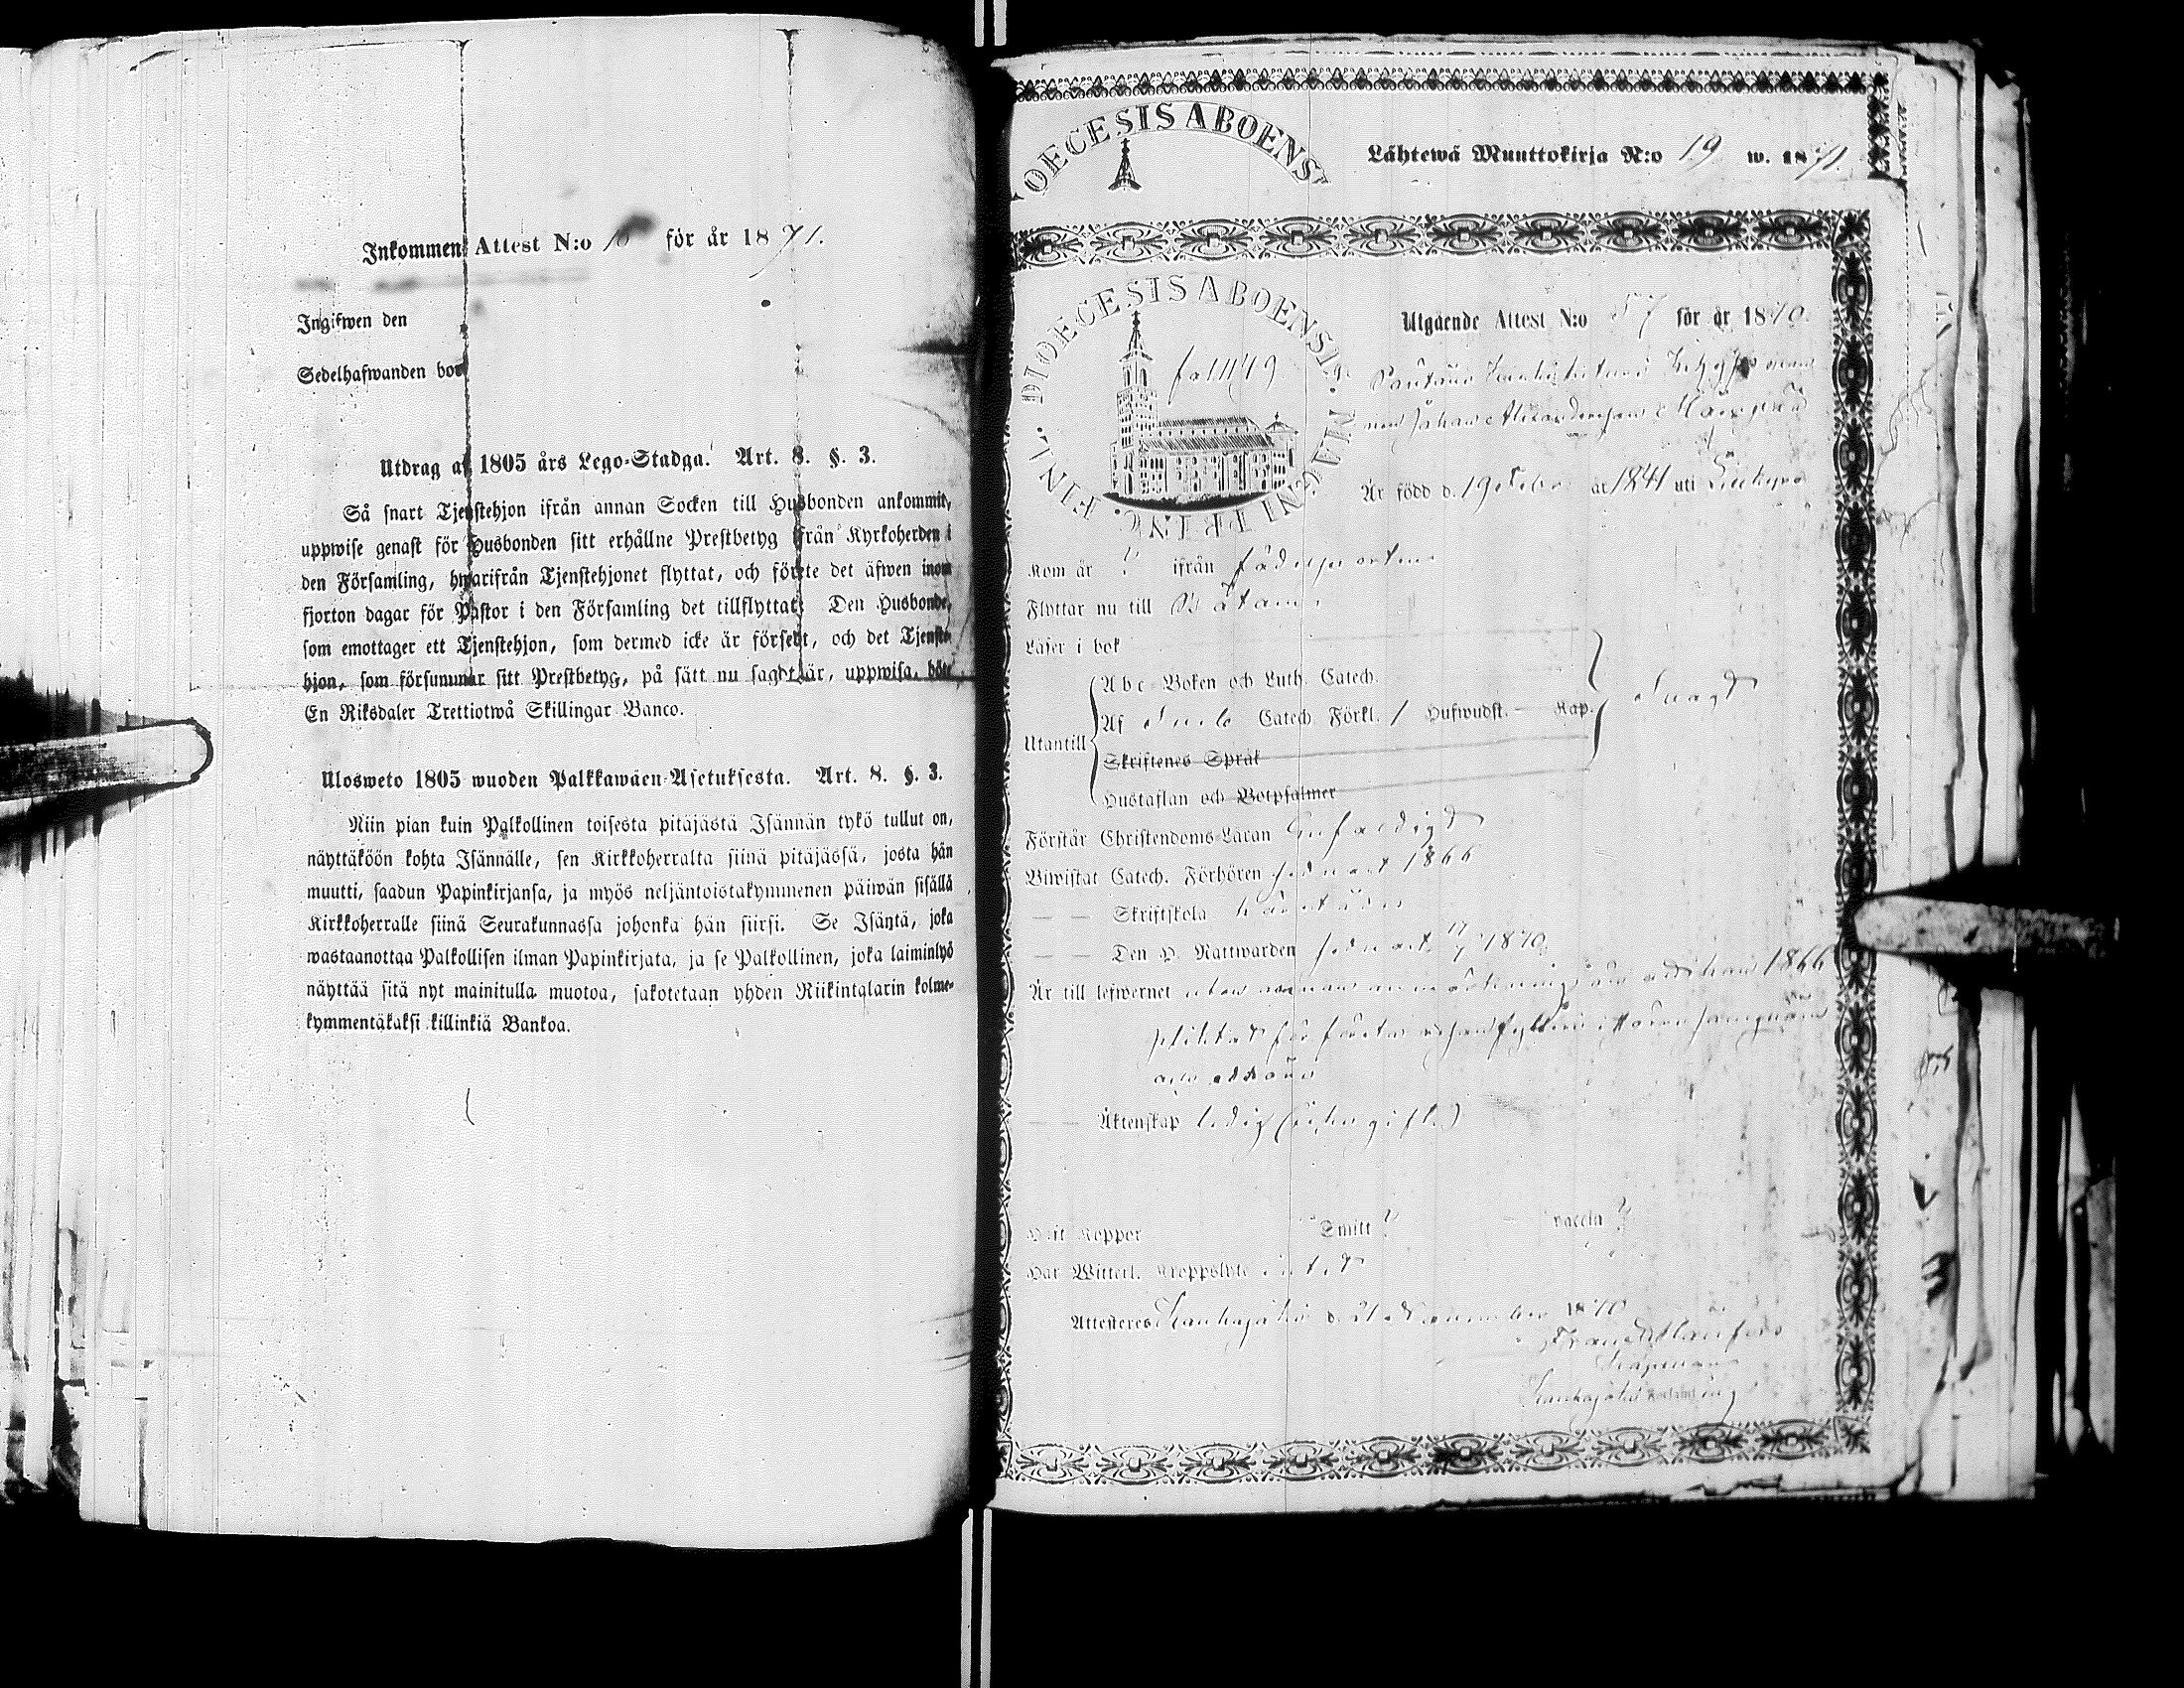 Inkommen Attest N:o 10 för år 1871.
Ingifwen den
Sedelhafwanden bor
Utdrag af 1805 års Lego-Stadga. Art. 8. §. 3.
Så snart Tjenstehjon ifrån annan Socken till Husbonden ankommit,
uppwise genast för Husbonden sitt erhållne Prestbetyg ifrån Kyrkoherden i
den Församling, hwarifrån Tjenstehjonet flyttat, och förete det äfwen inom
fjorton dagar för Pastor i den Församling det tillflyttat. Den Husbonde,
som emottager ett Tjenstehjon, som dermed icke är försedt, och det Tjenste-
hjon, som försummar sitt Prestbetyg, på sätt nu sagdt är, uppwisa, böte
En Riksdaler Trettiotwå Skillingar Banco.
Ulosweto 1805 wuoden Palkkawäen-Asetuksesta. Art. 8. §. 3.
Niin pian kuin Palkollinen toisesta pitäjästä Isännän tykö tullut on,
näyttäköön kohta Isännälle, sen Kirkkoherralta siinä pitäjässä, josta hän
muutti, saadun Papinkirjansa, ja myös neljäntoistakymmenen päiwän sisällä
Kirkkoherralle siinä Seurakunnassa johonka hän siirsi. Se Isäntä, joka
wastaanottaa Palkollisen ilman Papinkirjata, ja se Palkollinen, joka laiminlyö
näyttää sitä nyt mainitulla muotoa, sakotetaan yhden Riikintalarin kolme-
kymmentäkaksi killinkiä Bankoa.
DIOECESIS ABOENS
Lähtewä Muuttokirja N:o 19 w. 1871.
DIOECESIS ABOENSIS. MAGNI PRINC. FINL.
fol 1149
Utgående Attest N:o 57 för år 1870.
Johan Alexandersson
Är född d. 19 Octobr år 1841 uti
Kom år ? ifrån födelseorten
Flyttar nu till
Läser i bok
Utantill
Abc-Boken och Luth. Catech.
Af Catech. Förkl. 1 Hufwudst. — Kap.
Svagt
Skriftenes Språk
Hustaflan och Botpsalmer
Förstår Christendoms-Läran Enfaldigt
Biwistat Catech. Förhören sednast 1866
— — Skriftskola härstädes
— — Den H. Nattwarden sednast 17/7 1870.
Är till lefwernet utan annan anmärkning än att han 1866
pliktat för första resan fylleri
— — Äktenskap ledig (icke gift)
Haft Koppor Smitt ? vaccin ?
Har Witterl. Kroppslyte intet
Attesteras Kauhajoki d. 21 November 1870
Kapellan
Kauhajoki Församling